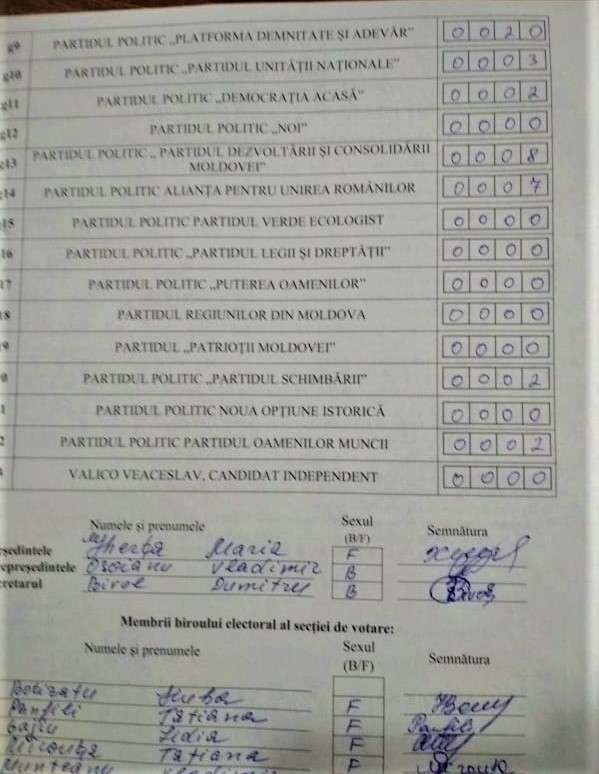 g9 PARTIDUL POLITIC „PLATFORMA DEMNITATE ȘI ADEVĂR” 0 0 2 0
g10 PARTIDUL POLITIC „PARTIDUL UNITĂȚII NAȚIONALE” 0 0 0 3
g11 PARTIDUL POLITIC „DEMOCRAȚIA ACASĂ” 0 0 0 2
g12 PARTIDUL POLITIC „NOI” 0 0 0 0
g13 PARTIDUL POLITIC „ PARTIDUL DEZVOLTĂRII ȘI CONSOLIDĂRII
MOLDOVEI” 0 0 0 8
g14 PARTIDUL POLITIC ALIANȚA PENTRU UNIREA ROMÂNILOR 0 0 0 7
15 PARTIDUL POLITIC PARTIDUL VERDE ECOLOGIST 0 0 0 0
16 PARTIDUL POLITIC „PARTIDUL LEGII ȘI DREPTĂȚII” 0 0 0 0
7 PARTIDUL POLITIC „PUTEREA OAMENILOR” 0 0 0 0
8 PARTIDUL REGIUNILOR DIN MOLDOVA 0 0 0 0
9 PARTIDUL „PATRIOȚII MOLDOVEI” 0 0 0 0
0 PARTIDUL POLITIC „PARTIDUL SCHIMBĂRII” 0 0 0 2
1 PARTIDUL POLITIC NOUA OPȚIUNE ISTORICĂ 0 0 0 0
2 PARTIDUL POLITIC PARTIDUL OAMENILOR MUNCII 0 0 0 2
VALICO VEACESLAV, CANDIDAT INDEPENDENT 0 0 0 0
Numele și prenumele Sexul (B/F) Semnătura
eședintele Gherța Maria F
epreședintele Vladimir B
cretarul Birol Dumitru B
Membrii biroului electoral al secției de votare:
Numele și prenumele Sexul (B/F) Semnătura
Botizatu
Panfili Tatiana F Panfili
Lidia F
Tatiana F
Munteanu Vladimir